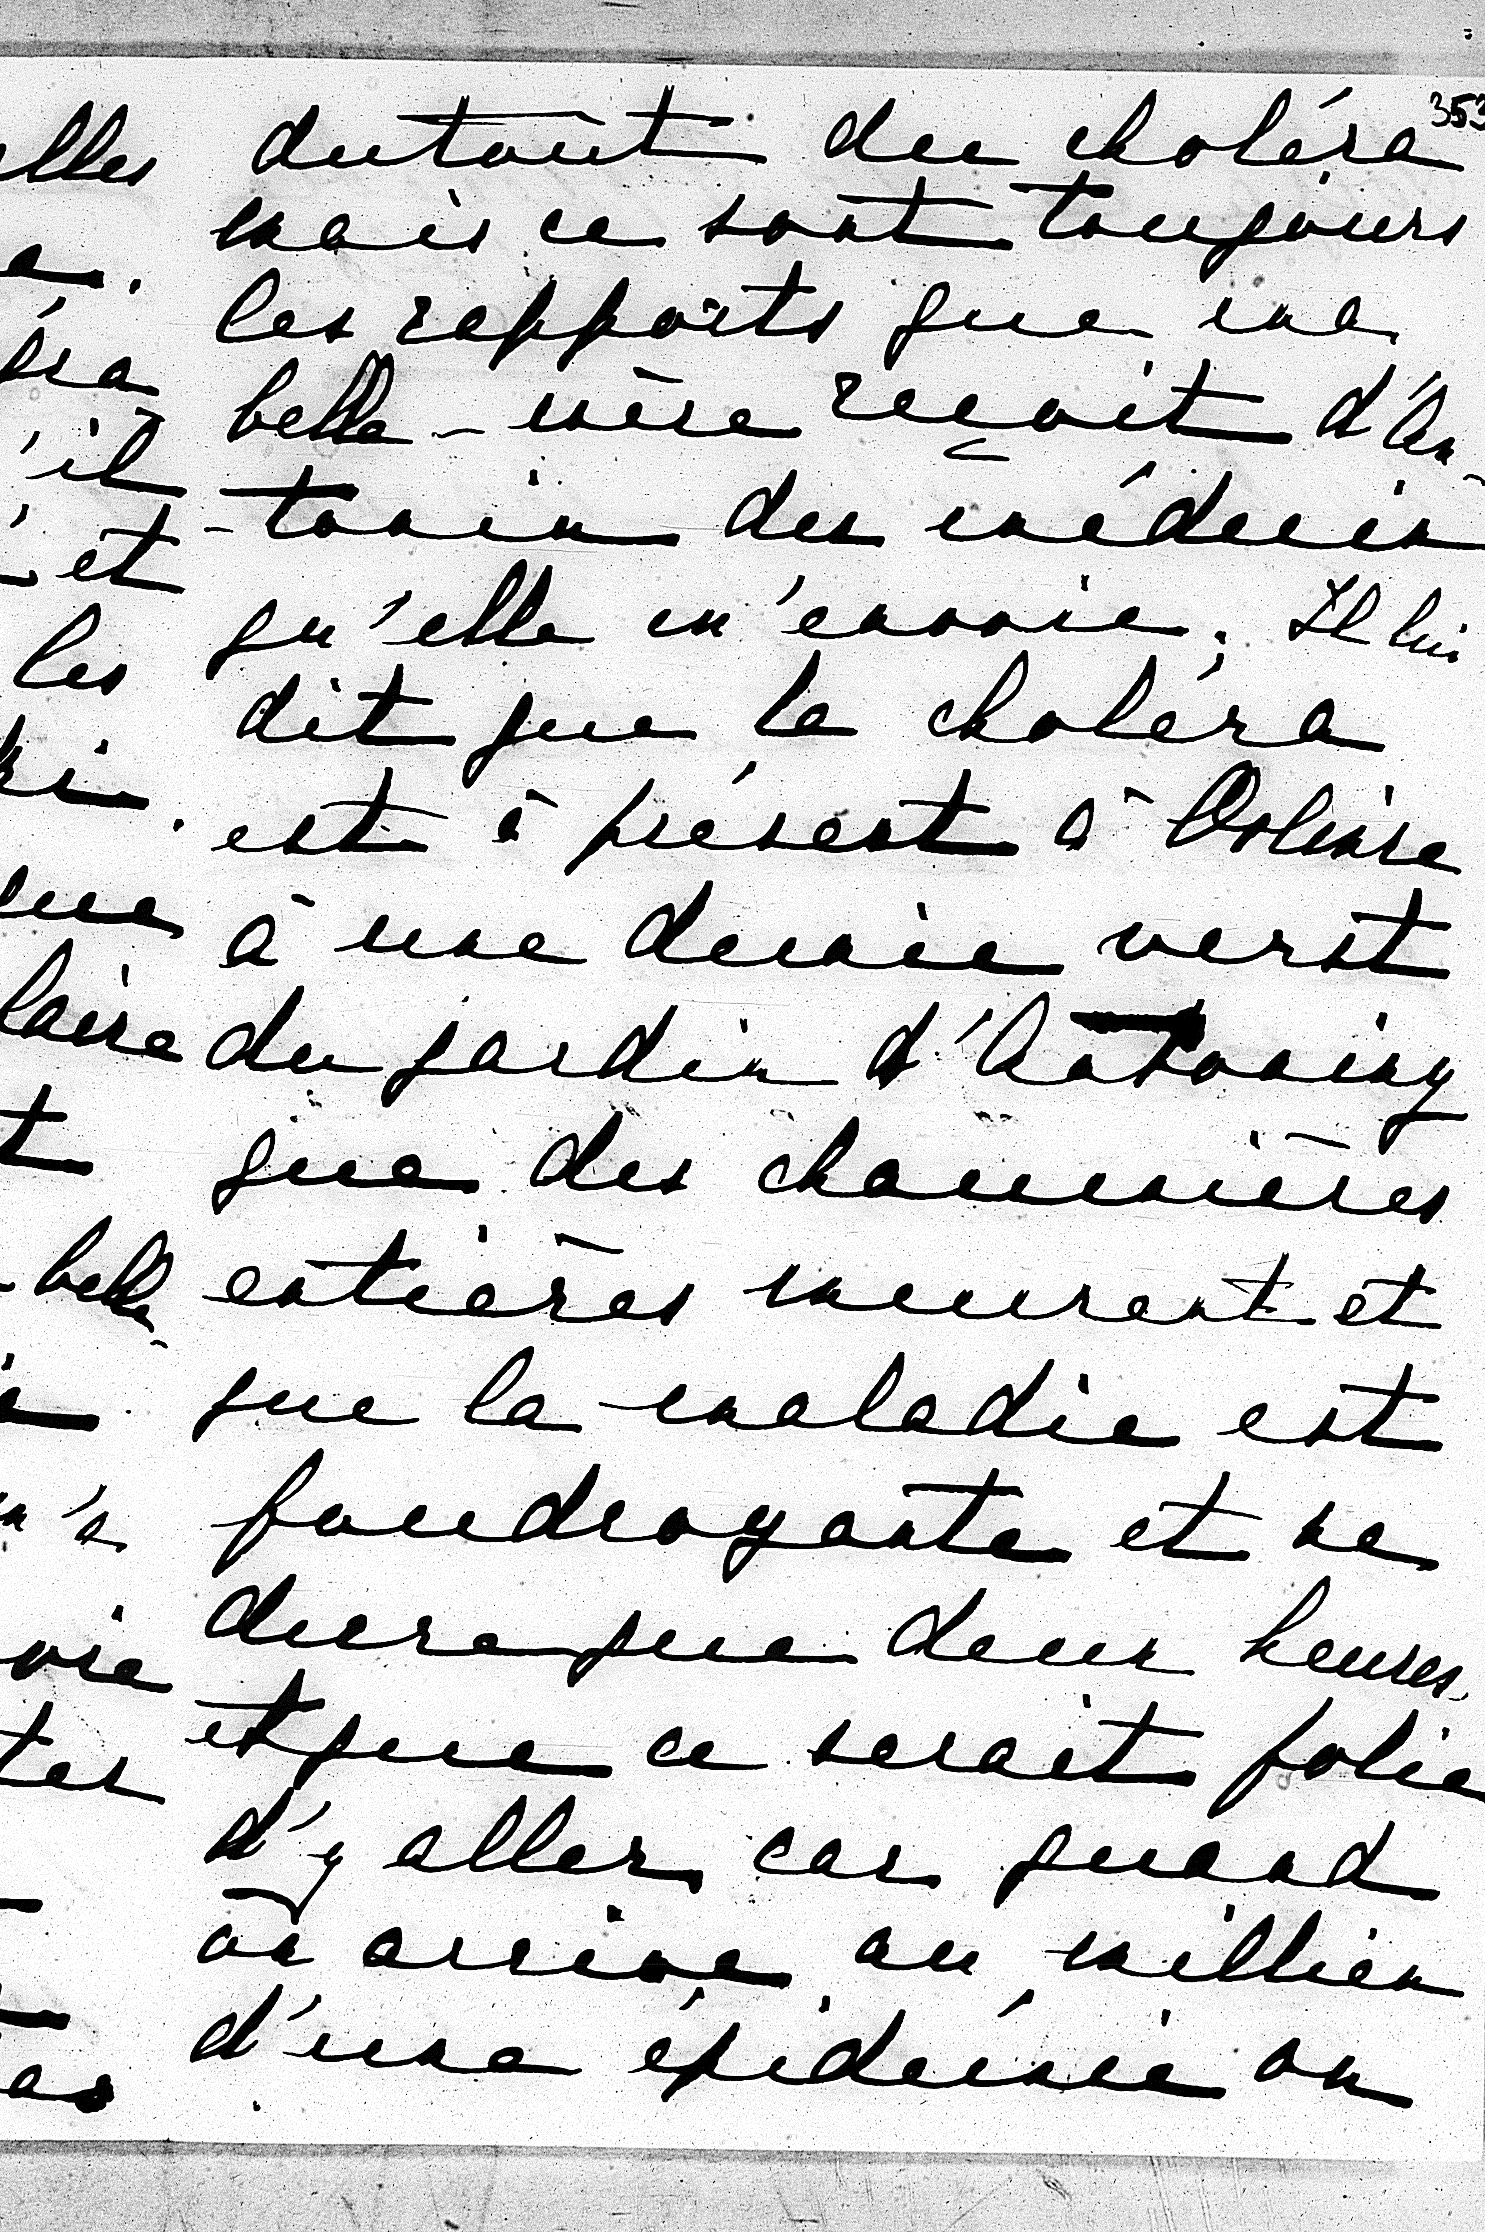 353
dutout du choléra
mais ce sont toujours
les rapports que ma
belle-mère reçoit d'An-
-tonin des médecin
qu'elle m'envoie. Il lui
dit que le choléra
est à présent à
à une demie verst
du jardin d'Antoniny
que des chaumières
entières meurent et
que la maladie est
foudroyante et ne
dure que deux heures,
et que ce serait folie
d'y aller, car quand
on arrive au millieu
d'une épidémie on
elles
a.
éra
'il
et
les
ri.
que
laire
t
belle-
m'a
oie
ter
as